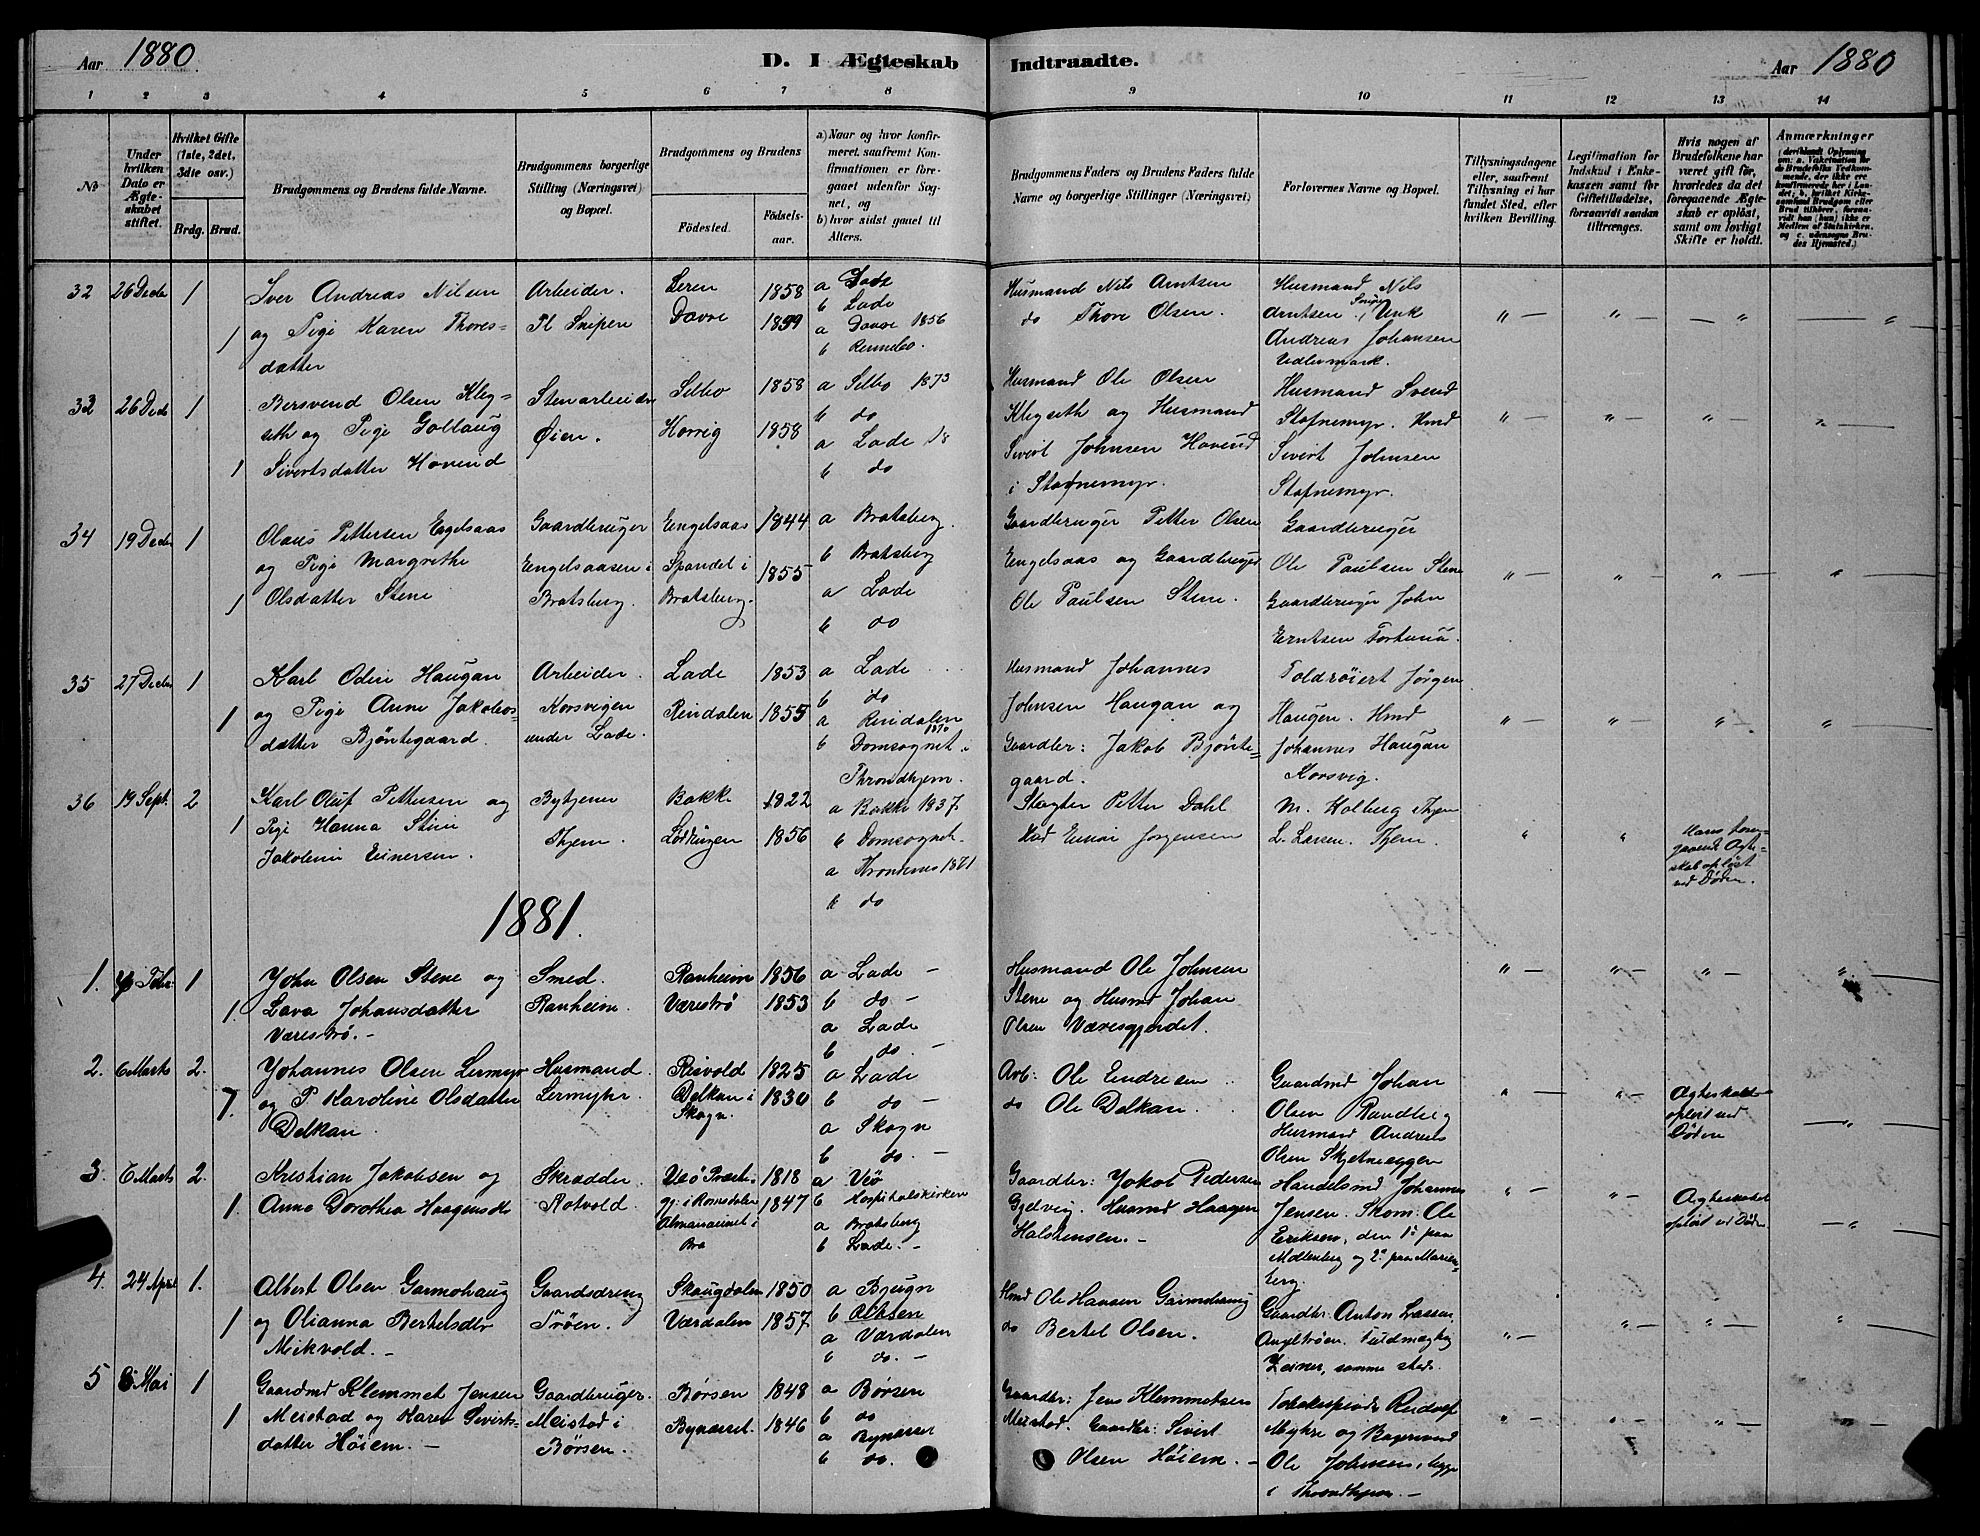 Aar 1880. D. I Ægteskab Indtraadte. Aar 1880
1 2 3 4 5 6 7 8 9 10 11 12 13 14
No
Under hvilken Dato er Ægteskabet stiftet.
Hvilket Gifte (1ste, 2det, 3die osv.)
Brdg. Brud.
Brudgommens og Brudens fulde Navne.
Brudgommens borgerlige Stilling (Næringsvei) og Bopæl.
Brudgommens og Brudens
Fødested.
Fødselsaar.
a) Naar og hvor konfirmeret, saafremt Konfirmationen er foregaaet udenfor Sognet, og
b) hvor sidst gaaet til Alters.
Brudgommens Faders og Brudens Faders fulde Navne og borgerlige Stillinger (Næringsvei)
Forlovernes Navne og Bopæl.
Tillysningsdagene eller, saafremt Tillysning ei har fundet Sted, efter hvilken Bevilling.
Legitimation for Indskud i Enkekassen samt for Giftetilladelse, forsaavidt saadan tiltrænges.
Hvis nogen af Brudefolkene har været gift før, hvorledes da det foregaaende Ægteskab er opløst, samt om lovligt Skifte er holdt.
Anmærkninger
32 26 Decbr 1 1
Iver Andreas Nilsen
og Pige Karen Thores-
datter
Arbeider.
Pl Snipen
Leren 1858
Dovre 1859
a Lade
b Lade
a Dovre 1856
b Rennebo.
Husmand Nils Arntsen
do Thore Olsen.
Husmand Nils
Arntsen Snipen, Unk
Andreas Johansen
33 26 Decbr 1 1
Bersvend Olsen Kleg-
seth og Pige Gollaug
Sivertsdatter Hovind
Stenarbeider
Øien.
Selbo 1858
Horrig 1858
a Selbo 1873
b do
a Lade 18
b do
Husmand Ole Olsen
Klegseth og Husmand
Sivert Johnsen Hovind
i Stofnemyr.
Husmand Svend
Stofnemyr. Hmd
Sivert Johnsen
Stofnemyr.
34 19 Decbr 1 1
Olaus Pettersen Engelsaas
og Pige Margrethe
Olsdatter Stene
Gaardbruger
Engelsaasen i
Bratsberg.
Engelsaas 1844
Spondel i 1855
Bratsberg.
a Bratsberg.
b Bratsberg
a Lade
b do
Gaardbruger Petter Olsen
Engelsaas og Gaardbruger
Ole Paulsen Stene.
Gaardbruger
Ole Paulsen Stene
Gaardbruger John
Erntsen Fortuna.
35 27 Decbr 1 1
Karl Odin Haugan
og Pige Anne Jakobs-
datter Bjøntegaard.
Arbeider.
Korsvigen
under Lade.
Lade 1853
Rindalen 1855
a Lade
b do
a Rindalen 1870
b Domsognet i
Throndhjem.
Husmand Johannes
Johnsen Haugan og
Gaardbr: Jakob Bjønte-
gaard.
Toldrøiert Jørgen
Haugen. Hmd
Johannes Haugan
Korsvig.
36 19 Sept. 2 1
Karl Oluf Pettersen og
Pige Hanna Stine
Jakobine Einersen.
Bytjener
Thjem.
Bakke 1822
Lødingen 1856
a Bakke 1837.
b Domsognet
a Throndenes 1871
b do
Slagter Petter Dahl
Einar Jørgensen
M. Holberg Thjem
L. Larsen. Thjem.
Hans fore-
gaaende Ægte-
skab opløst
ved Døden.
1881.
1. Febr. 1 1.
John Olsen Stene og
Lava Johansdatter
Værestrø.-
Smed.
Ranheim.
Ranheim 1856
Værestrø 1853
a Lade -
b do -
a Lade
b do. -
Husmand Ole Johnsen
Stene og Husmd Johan
Olsen Væresgjerdet.
2. 6 Marts 2.
Johannes Olsen Lermyr
og P Karoline Olsdatter
Delkan.
Husmand.
Lermyhr.
Risvold 1825
Delkan i 1830
Skogn.
a Lade
b do -
a Skogn
b do. -
Arb: Ole Endresen
do Ole Delkan.
Gaardmd Johan
Olsen Randberg
Husmand Andreas
Ægteskabet
opløst ved
Døden
3. 6 Marts 2. 1.
Kristian Jakobsen og
Anna Dorothea Haagensdtr
Skrædder.
Rotvold.
Veø Præste- 1818
gj: i Romsdalen 1847
a Veø
b Hospitalskirken
a Bratsberg
b Lade.-
Gaardbr: Jakob Pedersen
Gjelvig. Husmd Haagen
Halstensen.-
Handelsmd Johannes
Jensen. Skom: Ole
Eriksen, den 1ste paa
Møllenberg og 2. paa Marien-
berg.
Ægteskabet
opløst vd Døden
4. 24 April 1. 1
Albert Olsen Garmohaug
og Olianna Bertelsdtr
Mikvold.-
Gaardsdreng
Trøen.
Skaugdalen 1850
Værdalen 1857
a Bjugn
b
a Værdalen
b do. -
Hmd Ole Hansen Garmohaug
do Bertel Olsen.
Gaardbr: Anton Lassen
Angeltrøen.
Zeiner, samme sted.
5 Mai 1 1
Gaardmd Klemmet Jensen
Meistad og Karen Siverts-
datter Høiem.-
Gaardbruger.
Meistad i
Børsen.
Børsen 1848
Bynæsset. 1846
a Børsen
b do
a Bynæsset
b do.
Gaardbr: Jens Klemmetsen
Meistad. Gaardbr: Sivert
Olsen Høiem.-
Myhre og
Ole Johnsen, begge
i Throndhjem.-